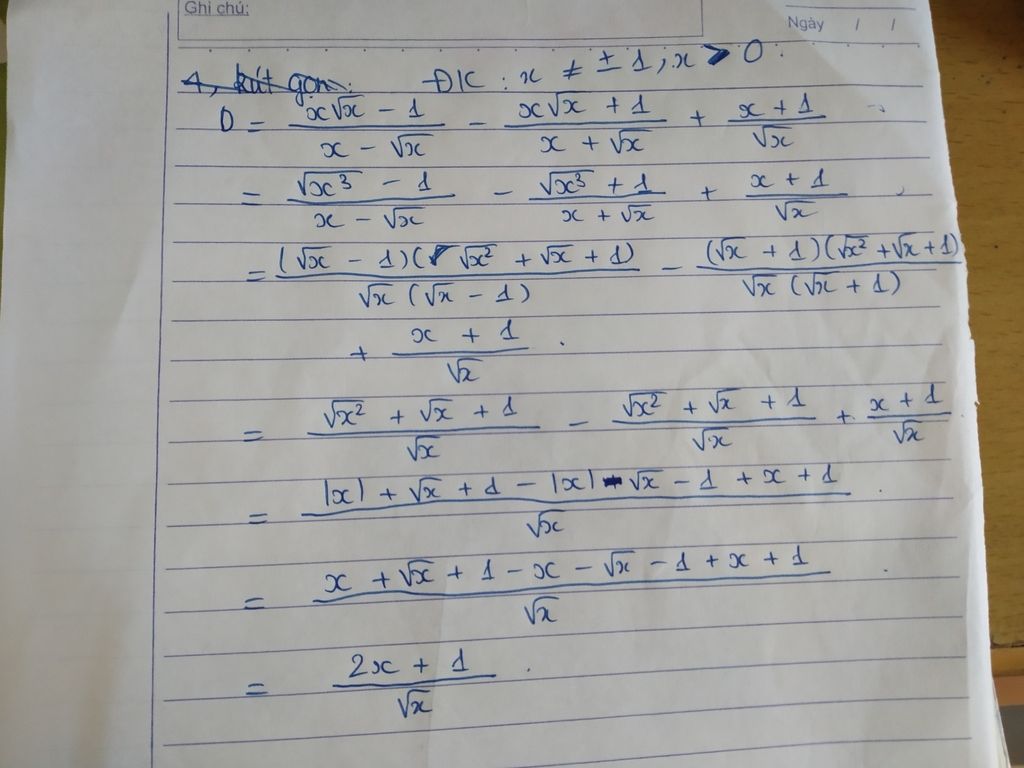 Ghi chú:
Ngày / /
4, Rút gọn: ĐK : x ≠ ± 1 ; x > 0 .
D = (x√x - 1)/(x - √x) - (x√x + 1)/(x + √x) + (x + 1)/√x
= (√x³ - 1)/(x - √x) - (√x³ + 1)/(x + √x) + (x + 1)/√x
= ((√x - 1)(√x² + √x + 1))/(√x (√x - 1)) - ((√x + 1)(√x² + √x + 1))/(√x (√x + 1))
+ (x + 1)/√x .
= (√x² + √x + 1)/√x - (√x² + √x + 1)/√x + (x + 1)/√x
= (|x| + √x + 1 - |x| - √x - 1 + x + 1)/√x .
= (x + √x + 1 - x - √x - 1 + x + 1)/√x .
= (2x + 1)/√x .